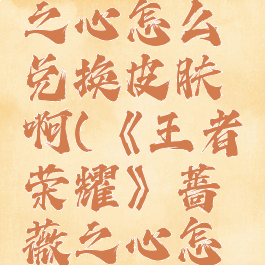 之心怎么
兑换皮肤
啊(《王者
荣耀》蔷
薇之心怎